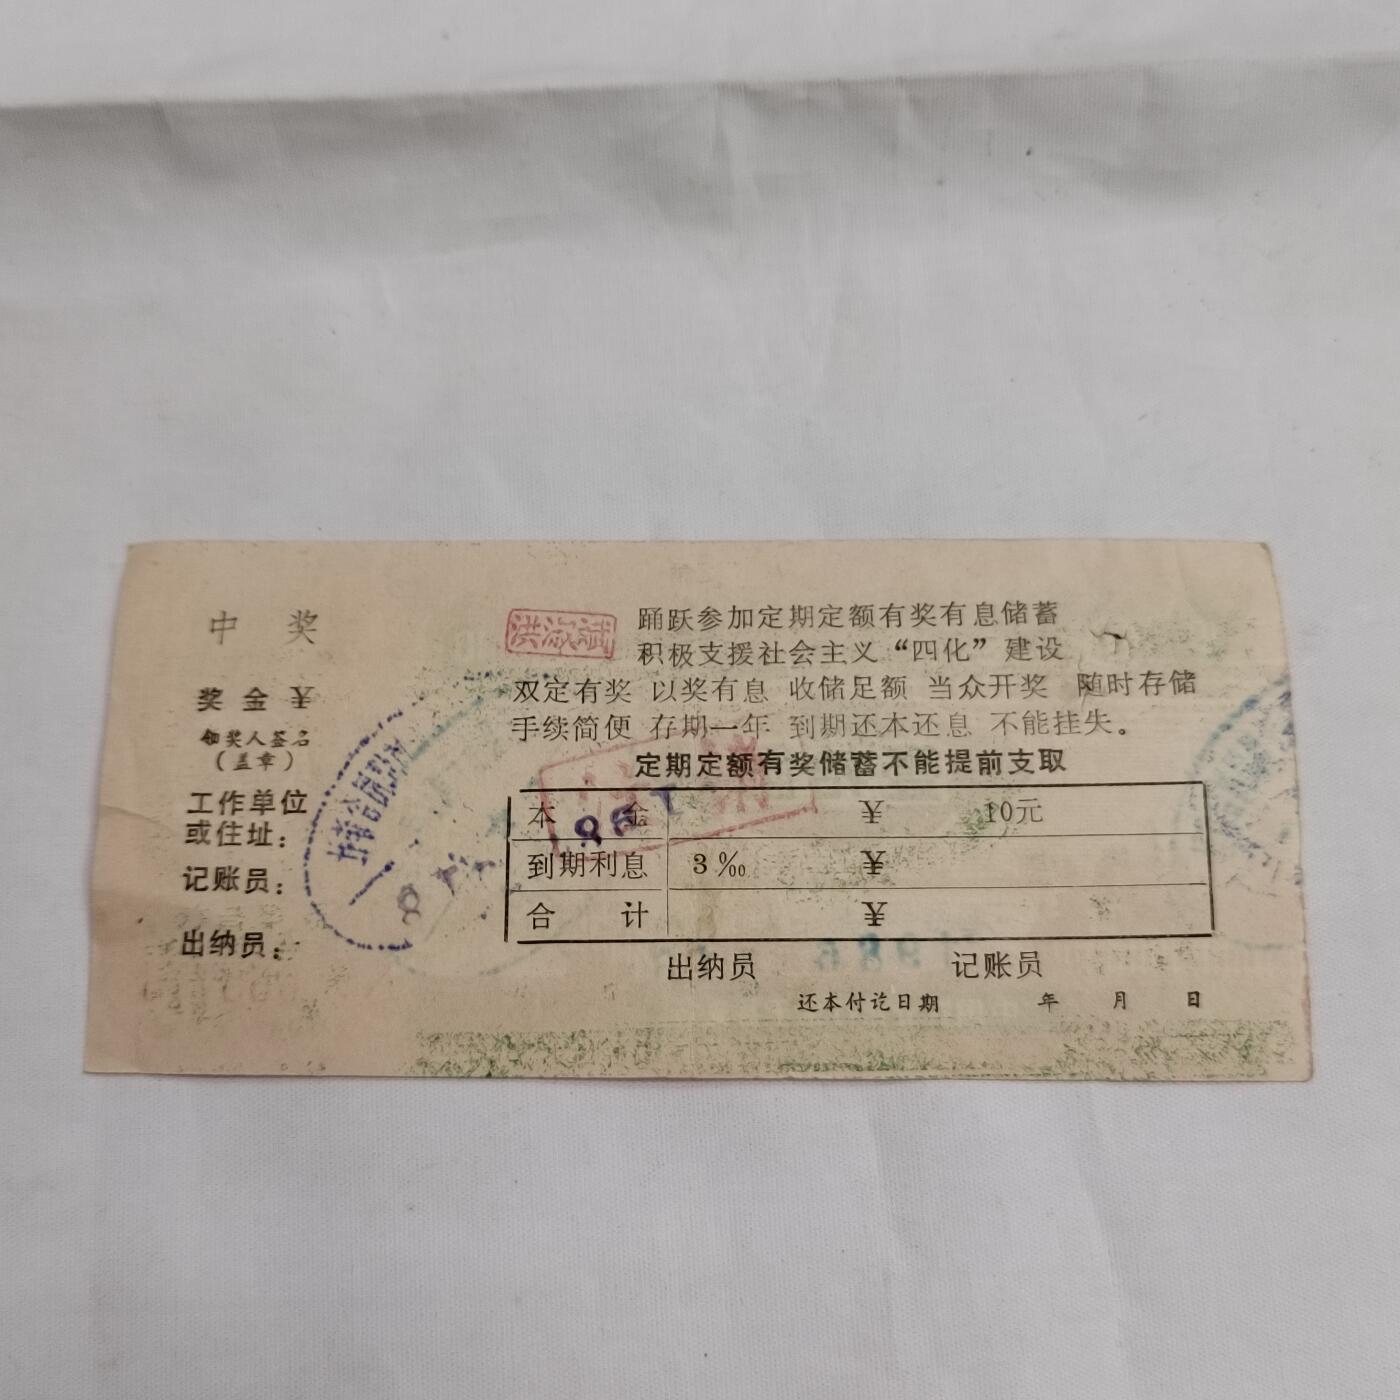 中 奖
奖 金 ¥
领奖人签名
(盖章)
工作单位
或住址：
记账员：
出纳员：
洪淑斌
踊跃参加定期定额有奖有息储蓄
积极支援社会主义“四化”建设
双定有奖 以奖有息 收储足额 当众开奖 随时存储
手续简便 存期一年 到期还本还息 不能挂失。
定期定额有奖储蓄不能提前支取
本 金 ¥ 10元
到期利息 3‰ ¥
合 计 ¥
出纳员 记账员
还本付讫日期 年 月 日